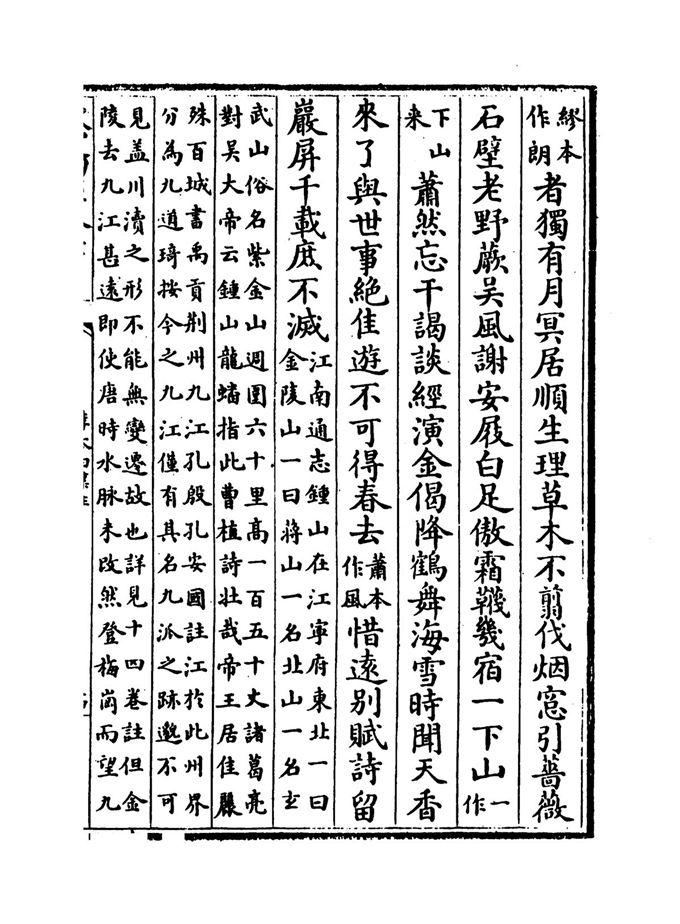 繆本作朗者獨有月冥居順生理草木不翦伐烟窓引薔薇
石壁老野蕨吳風謝安屐白足傲霜韈幾宿一下山一作
下山来蕭然忘干謁談經演金偈降鶴舞海雪時聞天香
來了與世事絶佳遊不可得春去蕭本作風惜遠别賦詩留
巖屏千載庶不滅江南通志鍾山在江寧府東北一曰
金陵山一曰蔣山一名北山一名玄
武山俗名紫金山週圍六十里高一百五十丈諸葛亮
對吳大帝云鍾山龍蟠指此曹植詩壯哉帝王居佳麗
殊百城書禹貢荆州九江孔殷孔安國註江於此州界
分為九道琦按今之九江僅有其名九派之跡邈不可
見盖川瀆之形不能無變遷故也詳見十四卷註但金
陵去九江甚遠即使唐時水脉未改然登梅崗而望九